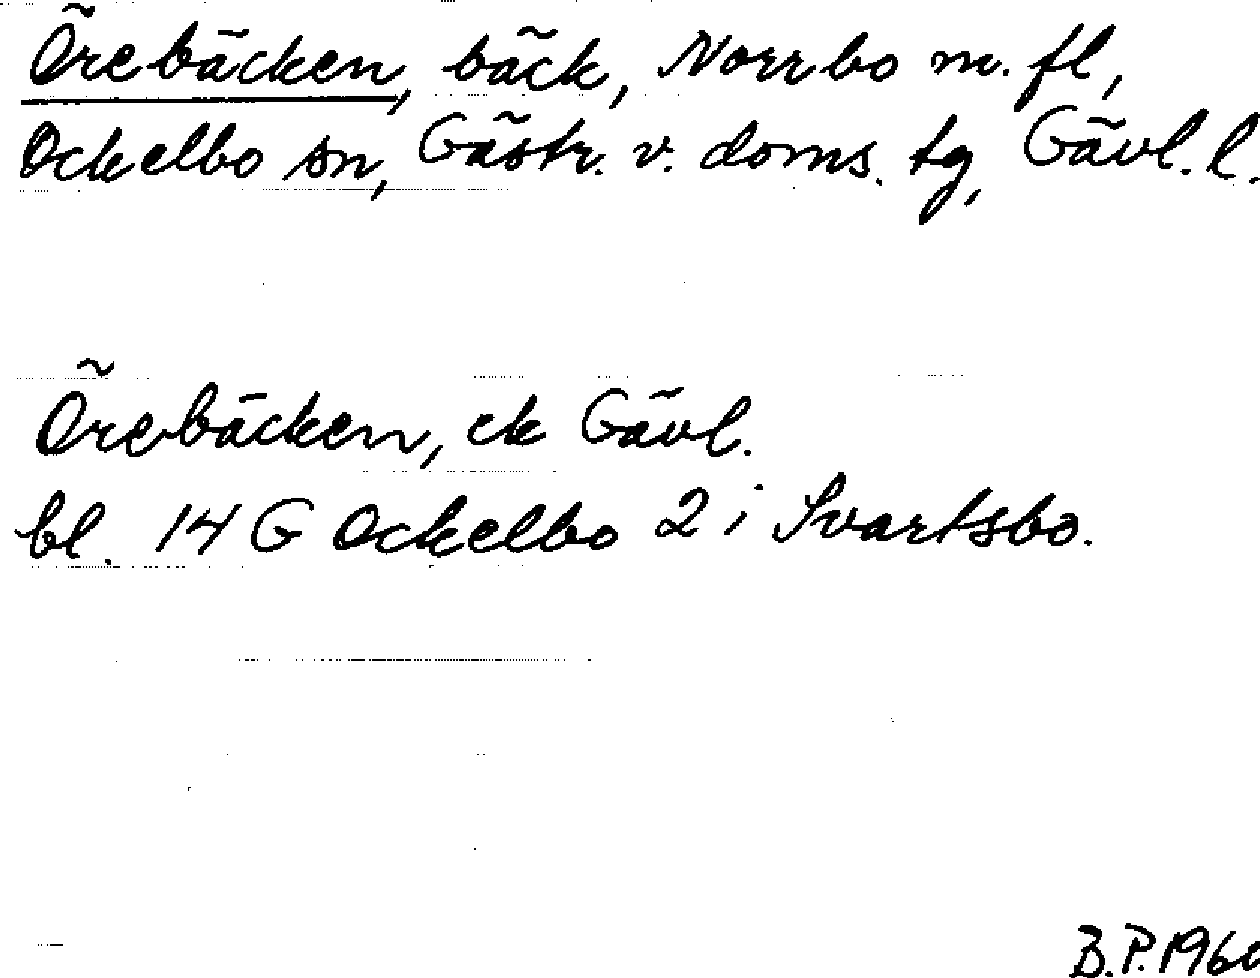 Örebäcken, bäck, Norrbo m. fl,
Ockelbo sn, Gästr. v. doms. tg, Gävl. l.
Örebäcken, ek Gävl.
bl. 14 G Ockelbo 2 i Svartsbo.
B.P. 196